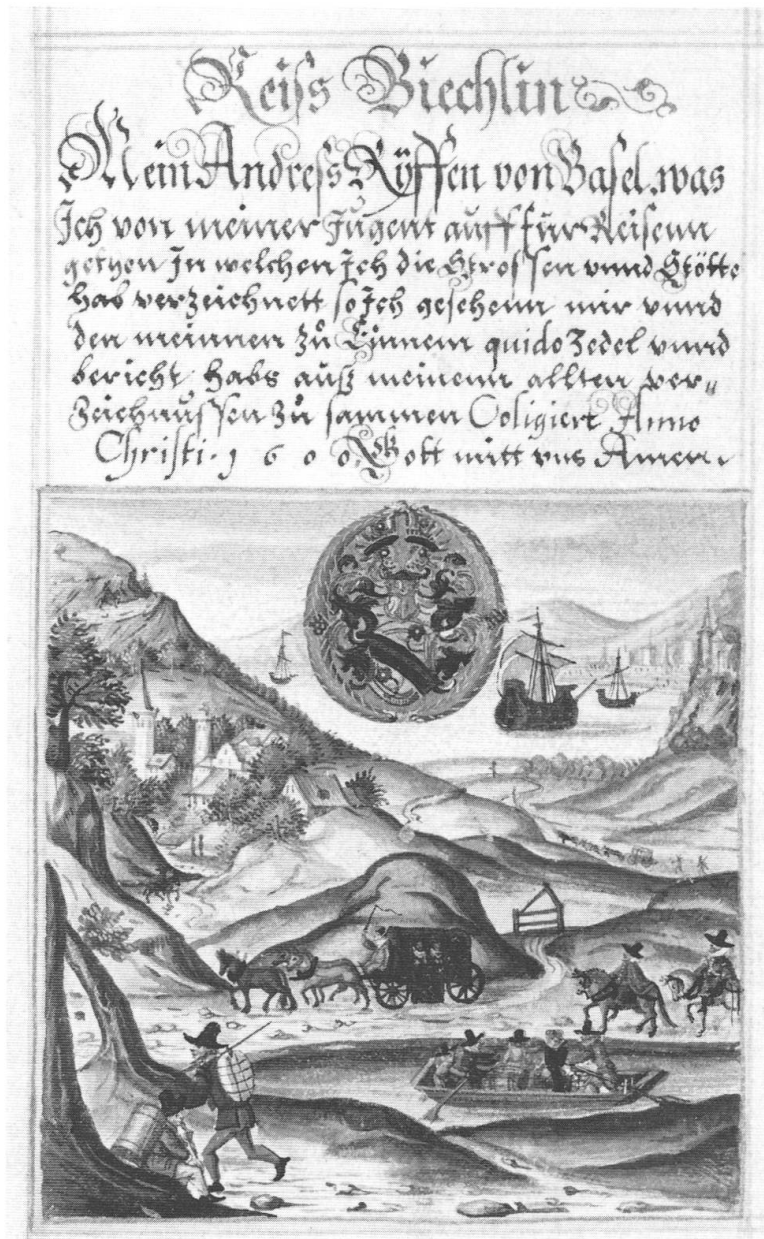 Reiss Biechlin
Mein Andress Ryffen von Basel. was
Ich von meiner Jugent auff für Reisenn
gethon In welchen Ich die Strossen vnnd Stötte
hab verzeichnett so Ich gesehenn mir vnnd
den meinnen zů Einnem quido Zedel vnnd
bericht habs auß meinenn allten ver„
zeichnussen zů sammen Coligiert Anno
Christi. 1600 Gott mitt vns Amen.